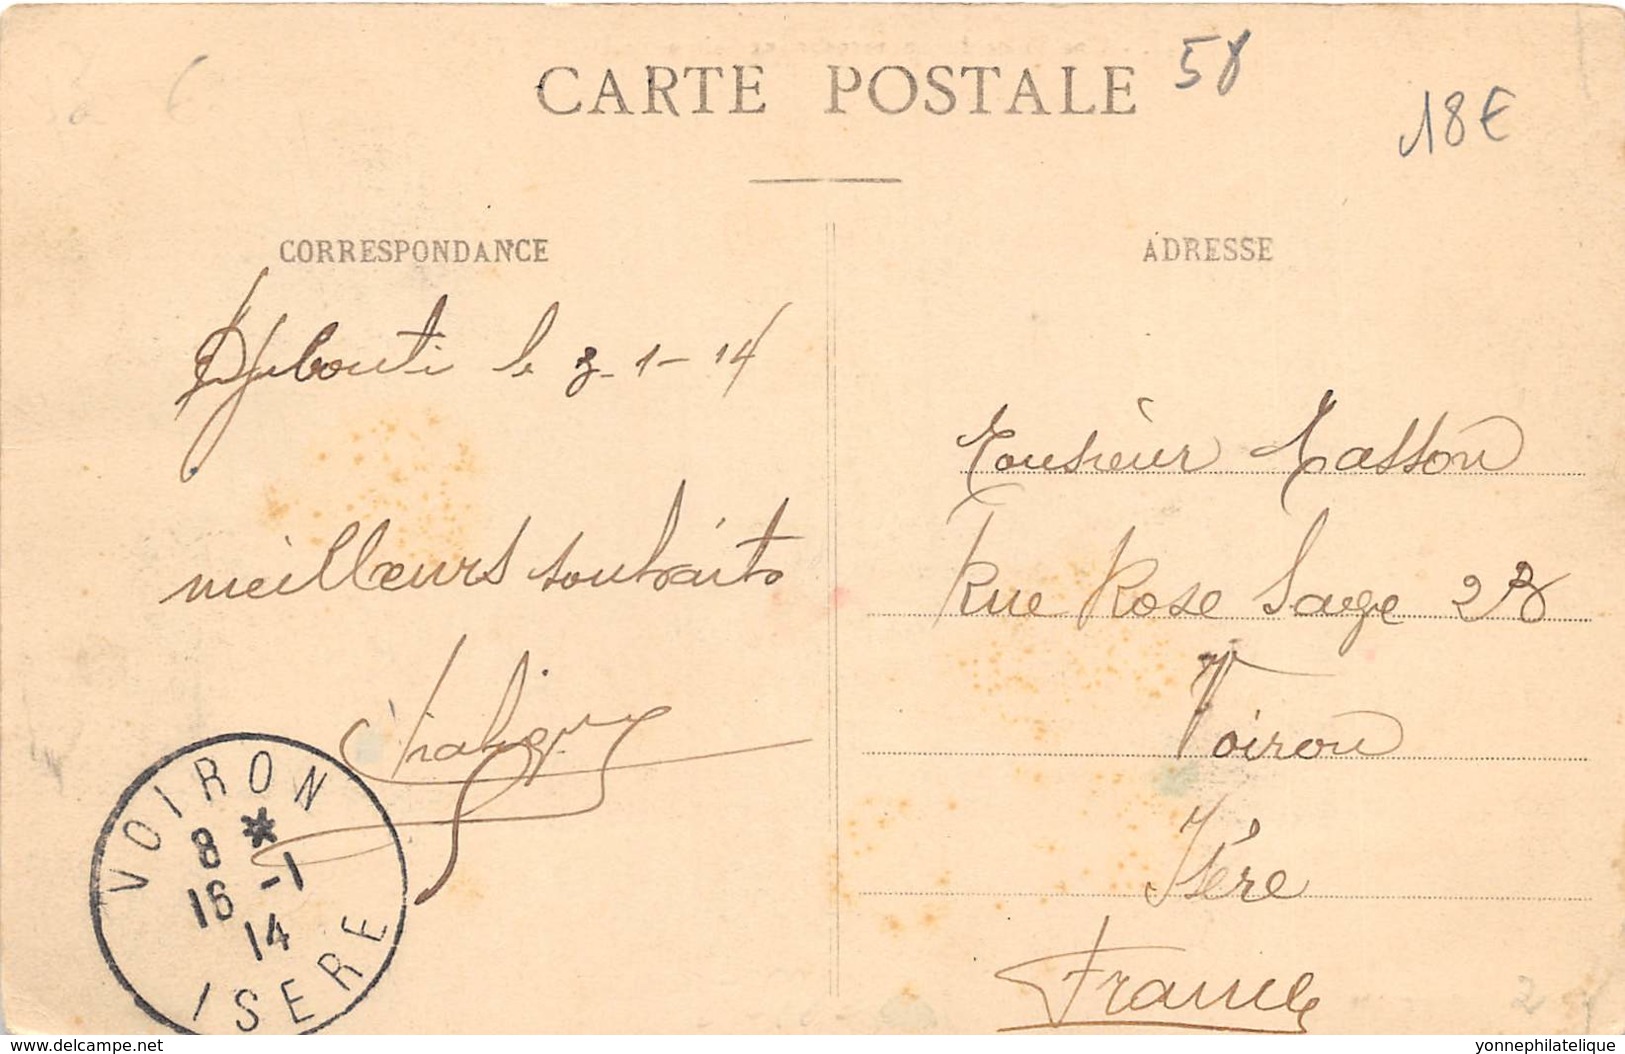 CARTE POSTALE
58
18€
CORRESPONDANCE
ADRESSE
Djibouti le 3-1-14
meilleurs souhaits
Monsieur Masson
Rue Rose Sage 23
Voiron
Isère
France
VOIRON
8 *
16 -1
14
ISERE
2
www.delcampe.net
yonnephilatelique